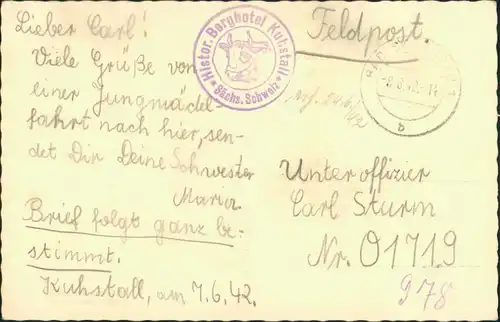 Lieber Carl!
Viele Grüße von
einer Jungmädel-
fahrt nach hier, sen-
det Dir Deine Schwester
Maria.
Brief folgt ganz be-
stimmt.
Kuhstall, am 7.6.42.
Histor. Berghotel Kuhstall
Sächs. Schweiz
Feldpost.
b
Unteroffizier
Carl Sturm
Nr. 01719
978